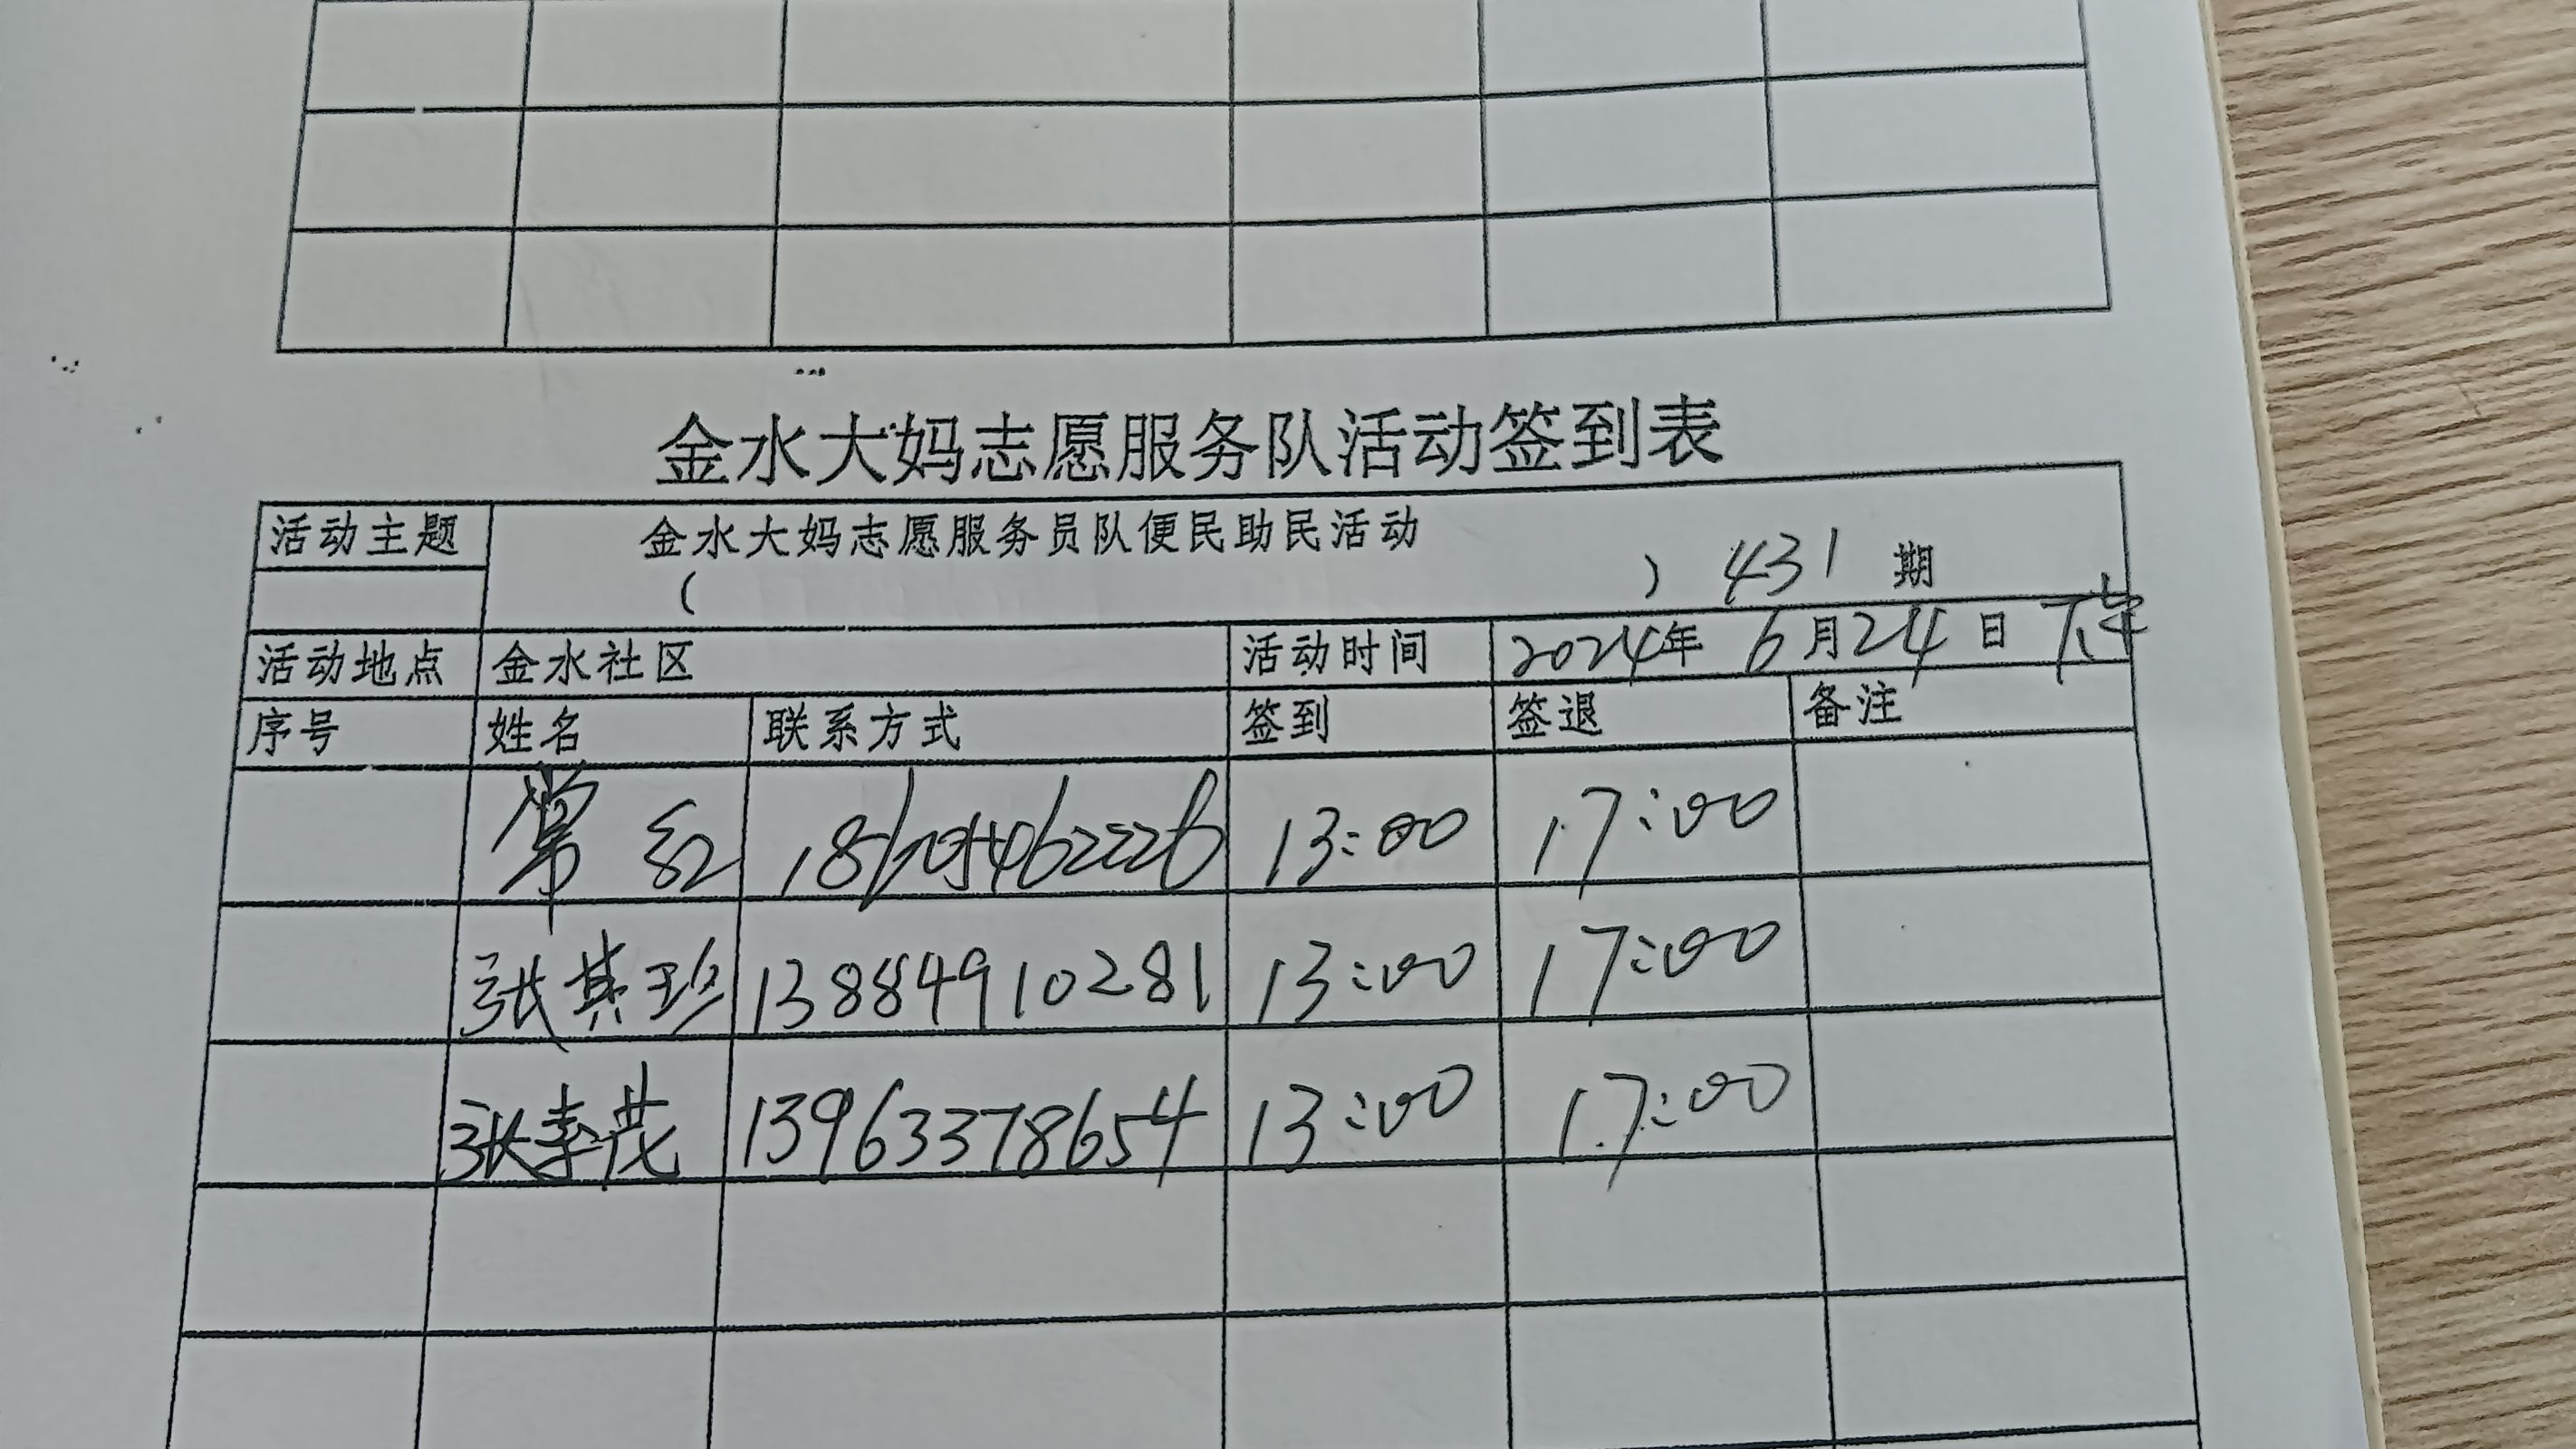 金水大妈志愿服务队活动签到表
活动主题 金水大妈志愿服务员队便民助民活动
( ) 431 期
活动地点 金水社区 活动时间 2024年 6月24日 下午
序号 姓名 联系方式 签到 签退 备注
常红 13:00 17:00
张其珍 13884910281 13:00 17:00
张茂 13963378654 13:00 17:00